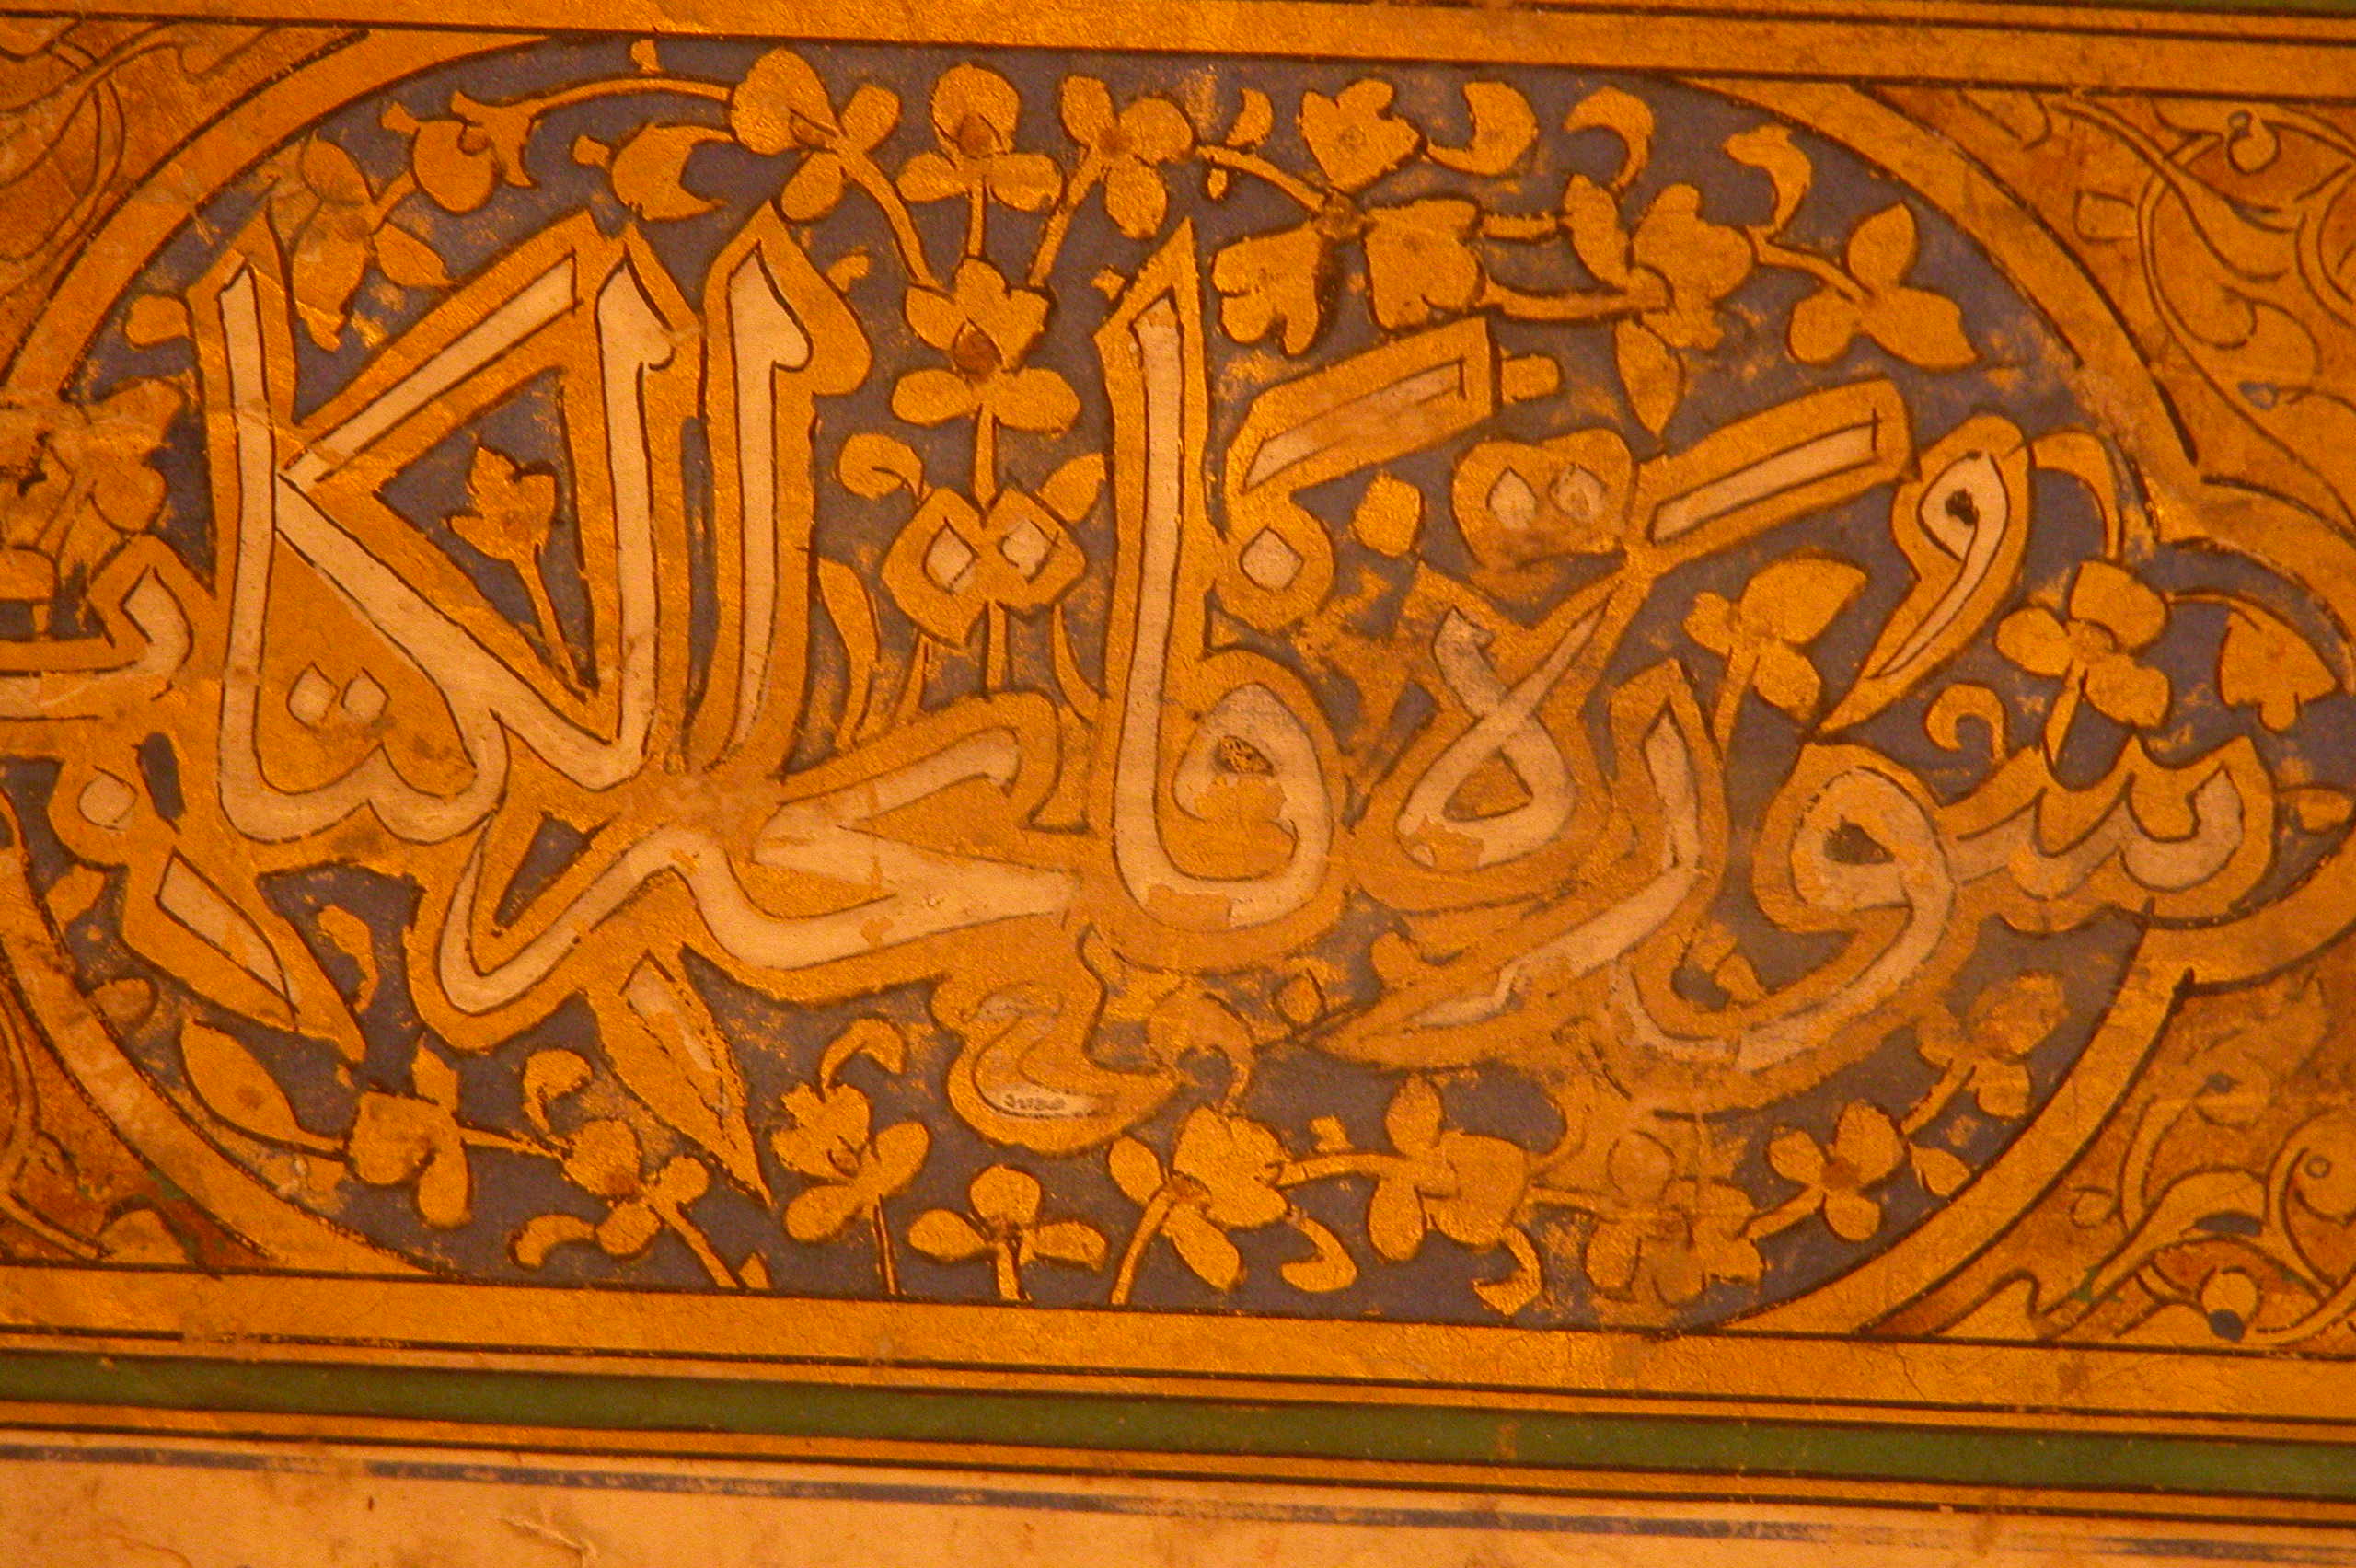 سُورَةُ فَاتِحَةِ الْكِتَابِ